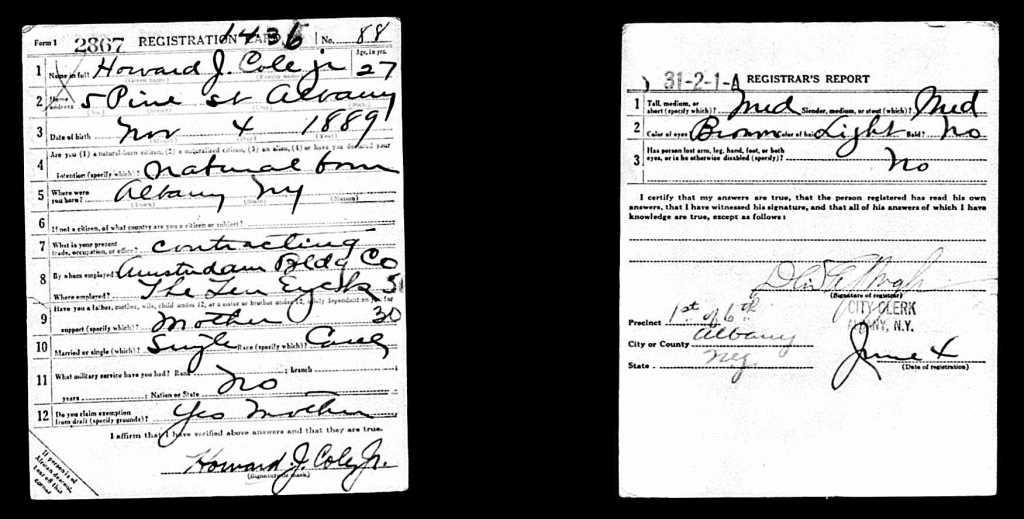 Form 1 2367 REGISTRATION CARD 1436 No. 88
1 Name in full Howard J. Cole jr Age, in yrs. 27
2 Home address 5 Pine st Albany
3 Date of birth Nov 4 1889
Are you (1) a natural-born citizen, (2) a naturalized citizen, (3) an alien, (4) or have you declared your
4 intention (specify which)? natural born
5 Where were you born? Albany Ny
(Town) (State) (Nation)
6 If not a citizen, of what country are you a citizen or subject?
7 What is your present trade, occupation, or office? contracting
8 By whom employed? Amsterdam Bldg Co
Where employed? The Ten Eyck
Have you a father, mother, wife, child under 12, or a sister or brother under 12, solely dependent on you for
9 support (specify which)? Mother 30
10 Married or single (which)? Single Race (specify which)? Cauc
11 What military service have you had? Rank ; branch
years ; Nation or State No
12 Do you claim exemption from draft (specify grounds)? Yes Mother
I affirm that I have verified above answers and that they are true.
Howard J. Cole Jr.
(Signature or mark)
If person is of
African descent,
tear off this
corner
31-2-1-A REGISTRAR'S REPORT
1 Tall, medium, or short (specify which)? Med Slender, medium, or stout (which)? Med
2 Color of eyes Brown Color of hair Light Bald? No
3 Has person lost arm, leg, hand, foot, or both eyes, or is he otherwise disabled (specify)? No
I certify that my answers are true, that the person registered has read his own
answers, that I have witnessed his signature, and that all of his answers of which I have
knowledge are true, except as follows:
(Signature of registrar)
Precinct 1st of 6th CITY CLERK
ALBANY, N.Y.
City or County Albany
State June 4
(Date of registration)